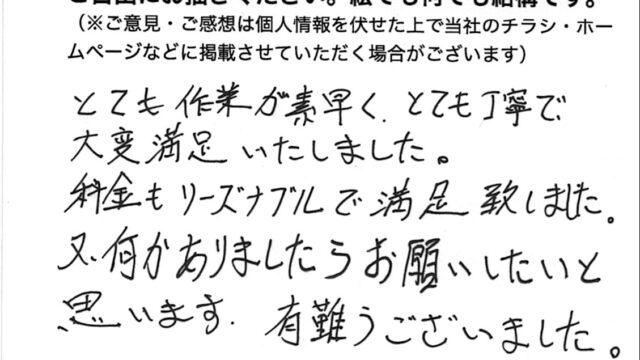 ご自由にお書きください。絵でも何でも結構です。
（※ご意見・ご感想は個人情報を伏せた上で当社のチラシ・ホー
ムページなどに掲載させていただく場合がございます）
とても作業が素早く、とても丁寧で
大変満足いたしました。
料金もリーズナブルで満足致しました。
又、何かありましたらお願いしたいと
思います。有難うございました。